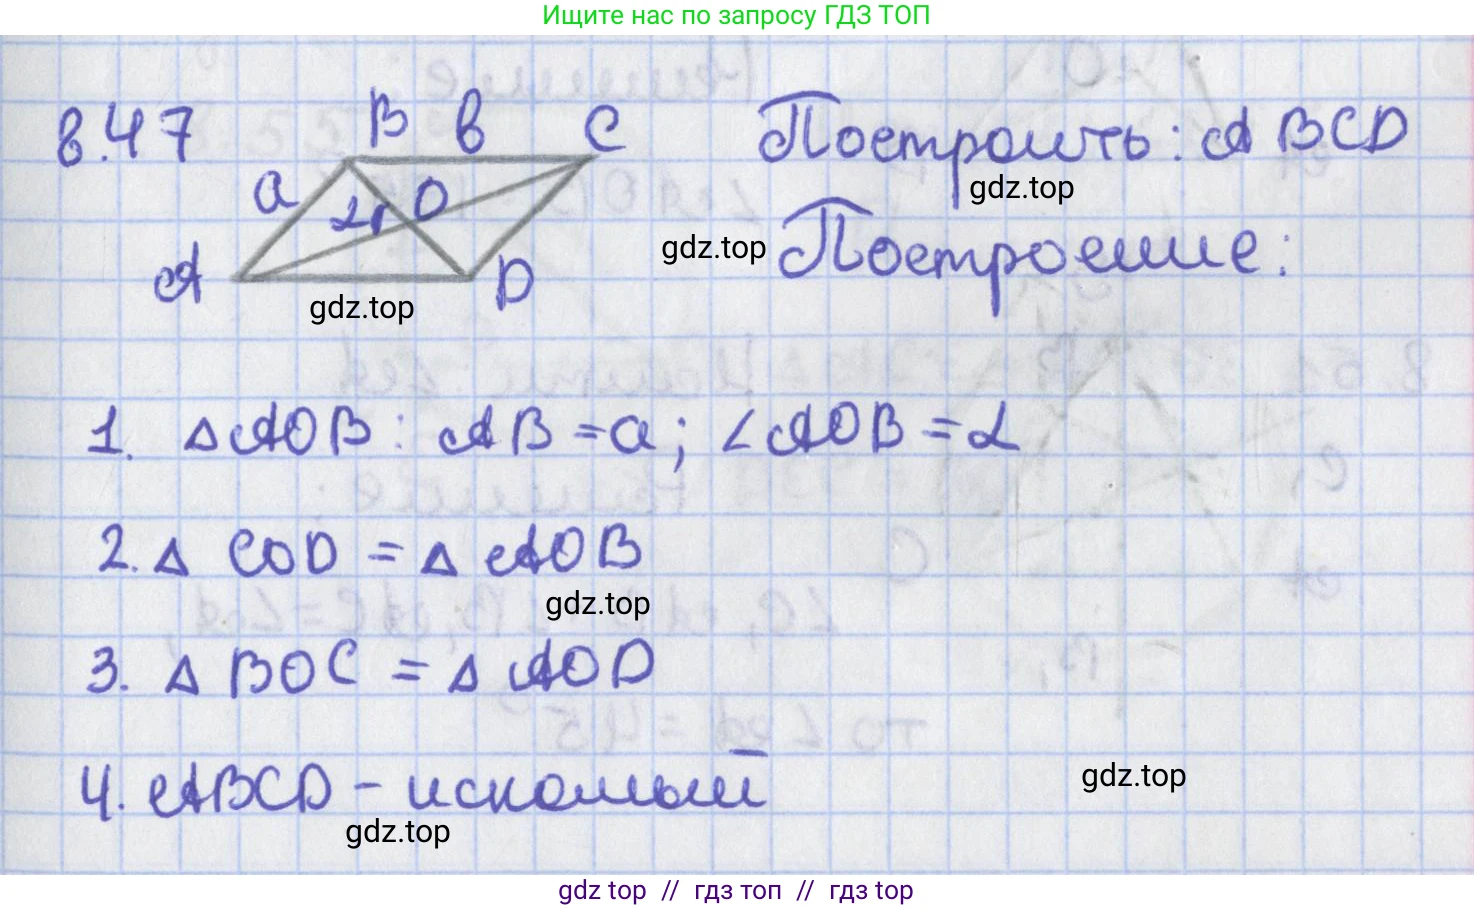 Ищите нас по запросу ГДЗ ТОП
8.47
B в C
a
α O
A D
Построить: ABCD
gdz.top
gdz.top
Построение:
gdz.top
1. △AOB: AB=a; ∠AOB=α
2. △ COD = △ AOB
gdz.top
3. △ BOC = △ AOD
4. ABCD - искомый
gdz.top
gdz.top
gdz top // гдз топ // гдз top